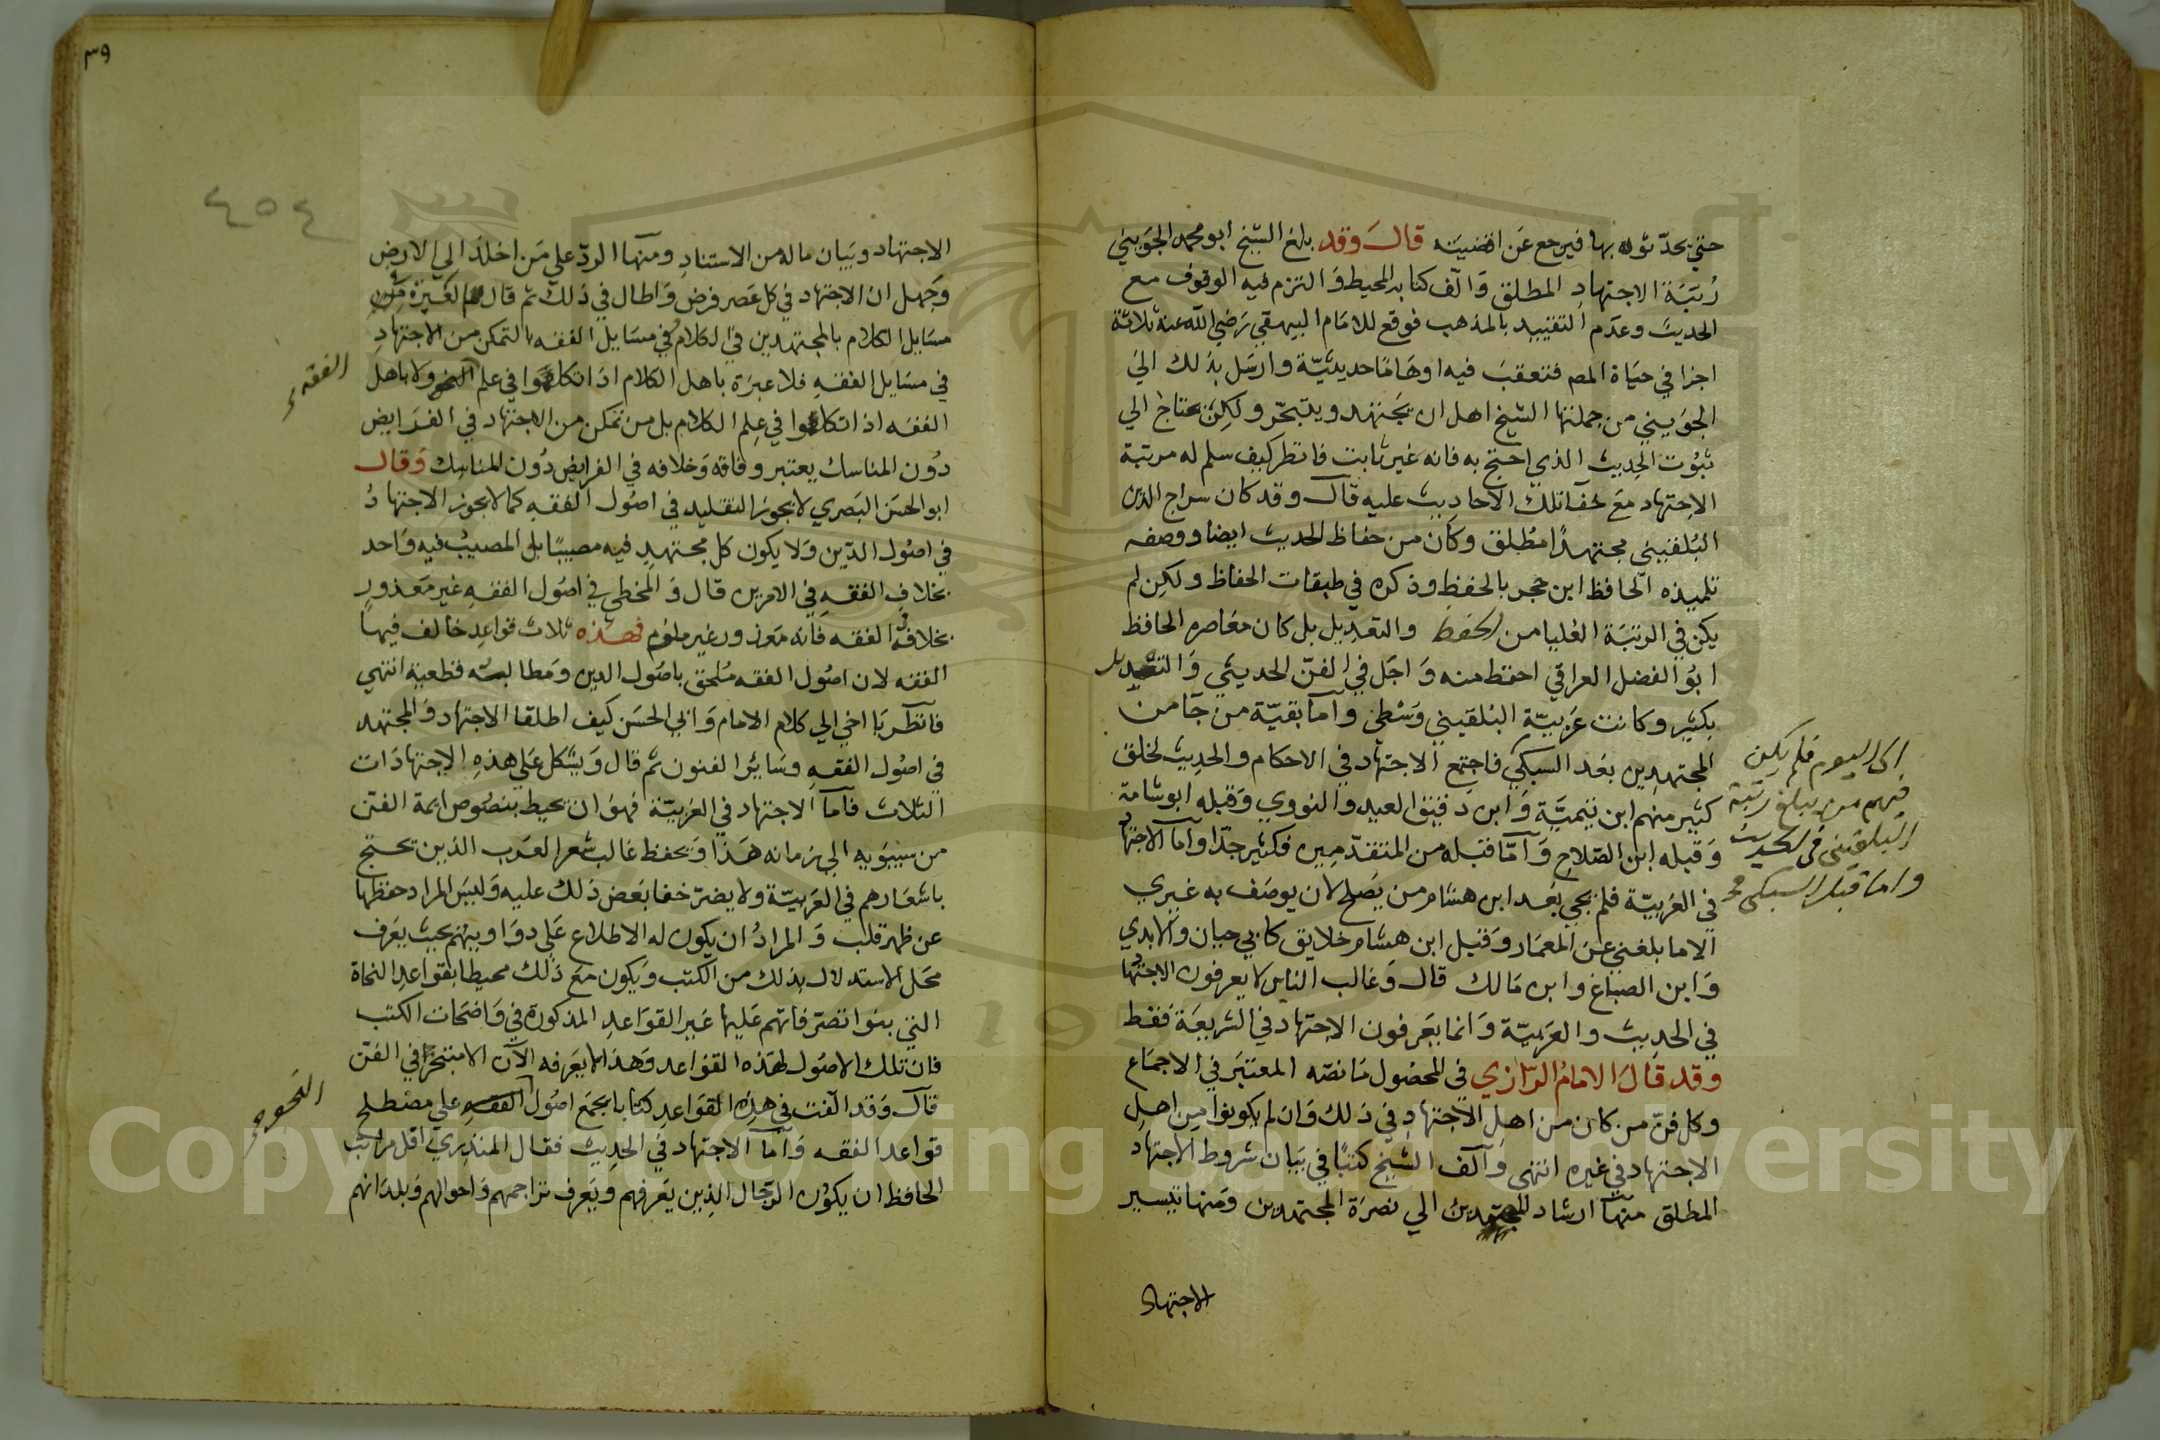 حتي يحدثوه بها فيرجع عن اقضيته قال وقد بلغ الشيخ ابو محمد الجويني
رتبة الاجتهاد المطلق والف كتابه المحيط والتزم فيه الوقوف مع
الحديث وعدم التقييد بالمذهب فوقع للامام البيهقي رضي الله عنه ثلاثة
اجزا في حياة المص فتعقب فيه اوهاما حديثية وارسل بذلك الي
الجويني من جملتها الشيخ اهل ان يجتهد ويتبحر ولكن يحتاج الي
ثبوت الحديث الذي احتج به فانه غير ثابت فانظر كيف سلم له مرتبة
الاجتهاد مع خفا تلك الاحاديث عليه قال وقد كان سراج الدين
البلقيني مجتهدا مطلق وكان من حفاظ الحديث ايضا ووصفه
تلميذه الحافظ ابن حجر بالحفظ وذكره في طبقات الحفاظ ولكن لم
يكن في الرتبة العليا من الحفظ والتعديل بل كان معاصره الحافظ
ابو الفضل العراقي احفظ منه واجل في الفن الحديثي والتعديل
بكثير وكانت عربية البلقيني وسطي واما بقية من جا من
المجتهدين بعد السبكي فاجتمع الاجتهاد في الاحكام والحديث لخلق
كثير منهم ابن تيمية وابن دقيق العيد والنووي وقبله ابو شامة
وقبله ابن الصلاح واما قبله من المتقدمين فكثير جدا واما الاجتهاد
في العربية فلم يجي بعد ابن هشام من يصلح لان يوصف به غيري
الا ما بلغني عن المعمار وقبل ابن هشام خلايق كابي حيان والابدي
وابن الصباغ وابن مالك قال وغالب الناس لا يعرفون الاجتهاد
في الحديث والعربية وانما يعرفون الاجتهاد في الشريعة فقط
وقد قال الامام الرازي في المحصول ما نصه المعتبر في الاجماع
وكل فن من كان من اهل الاجتهاد في ذلك وان لم يكونوا من اهل
الاجتهاد في غيره انتهى والف الشيخ كتبا في بيان شروط الاجتهاد
المطلق منها ارشاد المهتدين الي نصرة المجتهدين ومنها تيسير
الاجتهاد
الى اليوم فلم يكن
فيهم من يبلغ رتبة
البلقيني في الحديث
واما قبل السبكي
٣٩
٤٥٤
الاجتهاد وبيان ماله من الاستناد ومنها الرد علي من اخلد الي الارض
وجهل ان الاجتهاد في كل عصر فرض واطال في ذلك ثم قال
مسايل الكلام بالمجتهدين في الكلام وفي مسايل الفقه بالتمكن من الاجتهاد
في مسايل الفقه فلا عبرة باهل الكلام اذا تكلموا في علم ولا باهل
الفقه اذا تكلموا في علم الكلام بل من تمكن من الاجتهاد في الفرايض
دون المناسك يعتبر وفاقه وخلافه في الفرايض دون المناسك وقال
ابو الحسن البصري لا يجوز التقليد في اصول الفقه كما لا يجوز الاجتهاد
في اصول الدين ولا يكون كل مجتهد فيه مصيبا بل المصيب فيه واحد
بخلاف الفقه في الامرين قال والمخطي في اصول الفقه غير معذور
بخلافه في الفقه فانه معذور غير ملوم فهذه ثلاث قواعد خالف فيها
الفقه لان اصول الفقه ملحق باصول الدين ومطالبه قطعية انتهي
فانظر يا اخي الي كلام الامام وابي الحسن كيف اطلقا الاجتهاد والمجتهد
في اصول الفقه وساير الفنون ثم قال ويشكل علي هذه الاجتهادات
الثلاث فاما الاجتهاد في العربية فهو ان يحيط بنصوص ايمة الفن
من سيبويه الي زمانه هذا ويحفظ غالب شعر العرب الذين يحتج
باشعارهم في العربية ولا يضر خفا بعض ذلك عليه وليس المراد حفظها
عن ظهر قلب والمراد ان يكون له الاطلاع علي دواوينهم بحيث يعرف
محل الاستدلال بذلك من الكتب ويكون مع ذلك محيطا بقواعد النحاة
التي بنوا تصرفاتهم عليها غير القواعد المذكورة في واضحات الكتب
فان تلك الاصول لهذه القواعد وهذا لا يعرفه الان الا متبحر في الفن
قال وقد الفت في هذه القواعد كتابا بجمع اصول الفقه علي مصطلح
قواعد الفقه واما الاجتهاد في الحديث فقال المنذري اقل مراتب
الحافظ ان يكون الرجال الذين يعرفهم ويعرف تراجمهم واحوالهم وبلدانهم
الفقه
النحو
Copyright © King Saud University